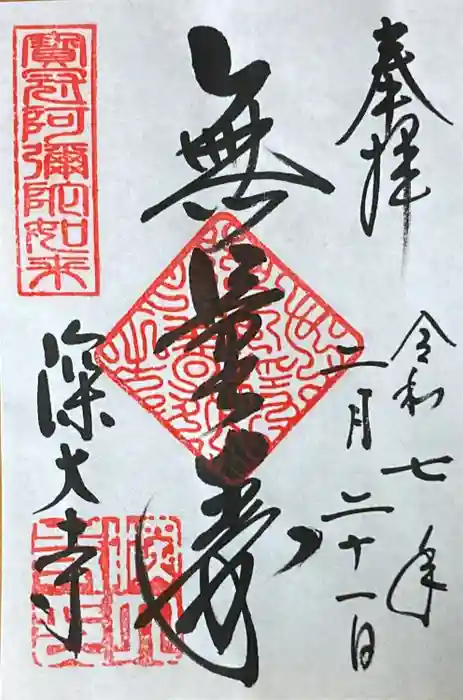 奉拝
令和七年
二月二十一日
無量寿
寶冠阿彌陀如来
深大寺